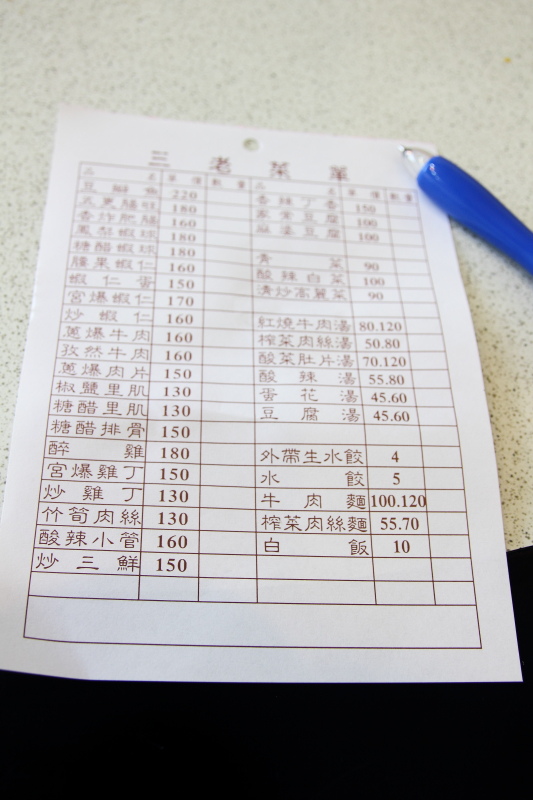 三老菜單
品名 單價 數量
豆瓣魚 220
五更腸旺 180
香炸肥腸 160
鳳梨蝦球 180
糖醋蝦球 180
腰果蝦仁 160
蝦仁蛋 150
宮爆蝦仁 170
炒蝦仁 160
蔥爆牛肉 160
孜然牛肉 160
蔥爆肉片 150
椒鹽里肌 130
糖醋里肌 130
糖醋排骨 150
醉雞 180
宮爆雞丁 150
炒雞丁 130
竹筍肉絲 130
酸辣小管 160
炒三鮮 150
品名 單價 數量
香辣丁香 150
家常豆腐 100
麻婆豆腐 100
青菜 90
酸辣白菜 100
清炒高麗菜 90
紅燒牛肉湯 80.120
榨菜肉絲湯 50.80
酸菜肚片湯 70.120
酸辣湯 55.80
蛋花湯 45.60
豆腐湯 45.60
外帶生水餃 4
水餃 5
牛肉麵 100.120
榨菜肉絲麵 55.70
白飯 10